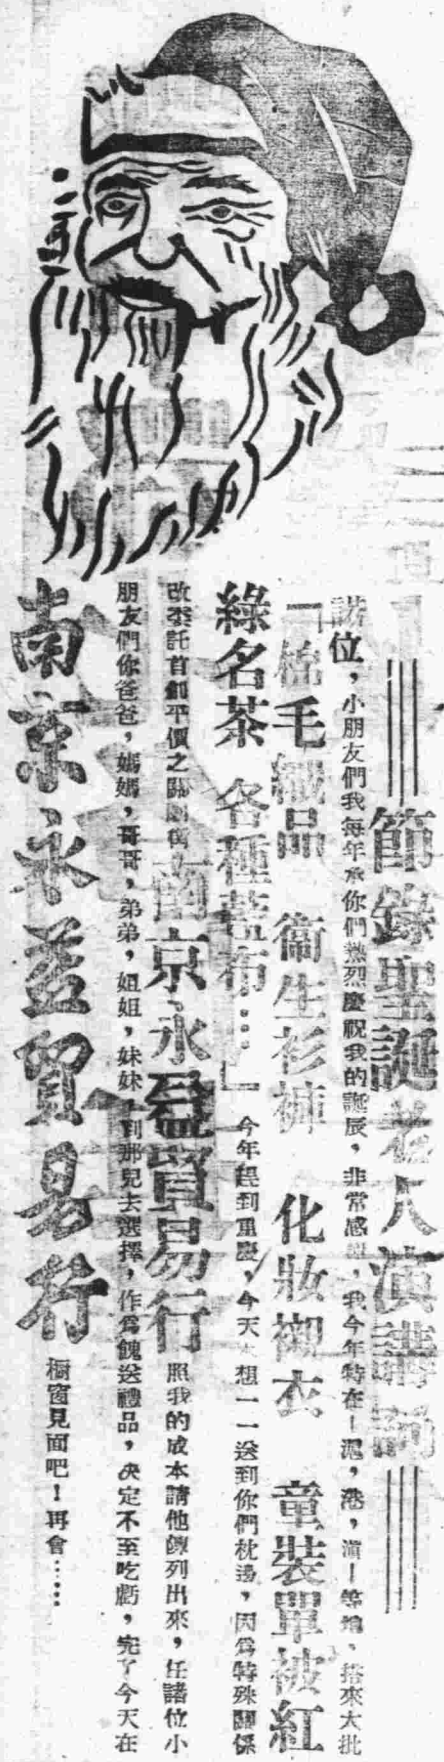 節錄聖誕老人演講詞
諸位,小朋友們我每年承你們熱烈慶祝我的誕辰,非常感謝,我今年特在—滬,港,滇—等埠,搭來大批
「棉毛織品 衞生衫褲 化妝襯衣 童裝單被紅
綠名茶 各種藍布…」今年趕到重慶,今天 想一一送到你們枕邊,因爲特殊關係
改委託首創平價之 南京永益貿易行照我的成本請他陳列出來,任諸位小
朋友們你爸爸,媽媽,哥哥,弟弟,姐姐,妹妹 到那兒去選擇,作爲餽送禮品,决定不至吃虧,完了今天在
南京永益貿易行 櫥窗見面吧!再會……